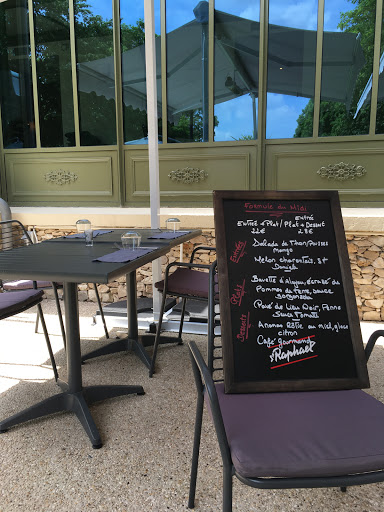 Formule du Midi
Entré
Entré + Plat / Plat + Dessert
22€ 28€
Entrées
Salade de Thon, Poisses
Mango
Melon charentais, St
Daniele
Plats
Bavette d'Aloyau, écrasé de
Pommes de terre, sauce
Pavé de Lieu Noir, Penne
Sauce Tomate
Desserts
Ananas Rôtie au miel, glace
citron
Café gourmand
Raphaël